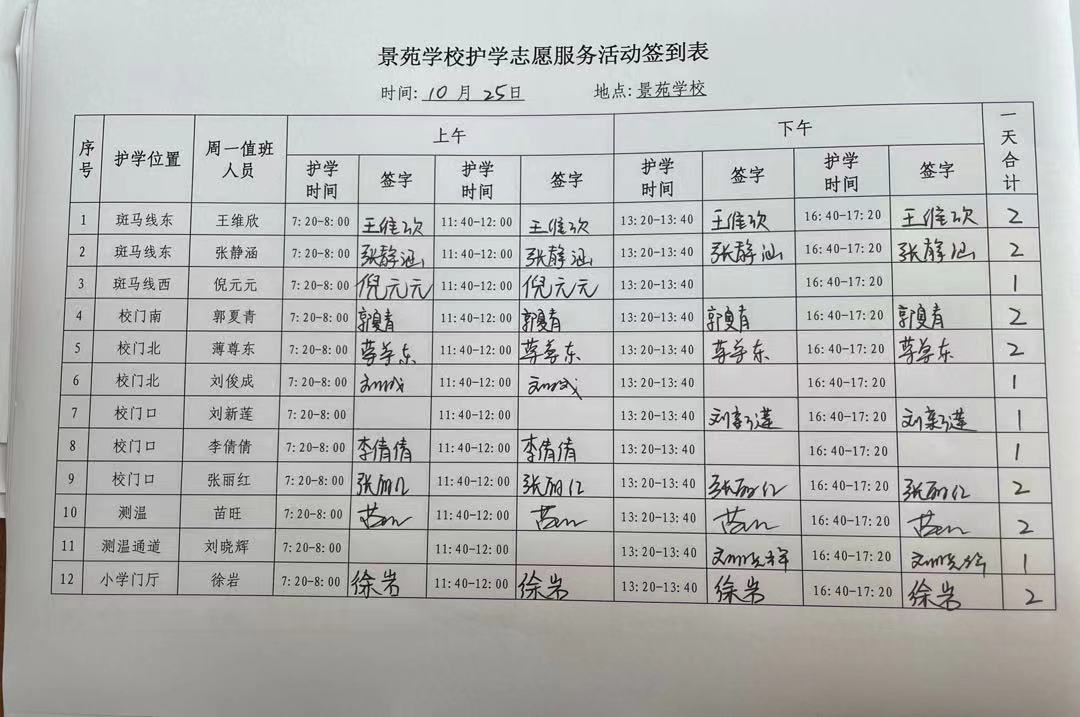 景苑学校护学志愿服务活动签到表
时间: 10 月 25日 地点: 景苑学校
序号 护学位置 周一值班人员 上午 下午 一天合计
护学时间 签字 护学时间 签字 护学时间 签字 护学时间 签字
1 斑马线东 王维欣 7:20-8:00 王维欣 11:40-12:00 王维欣 13:20-13:40 王维欣 16:40-17:20 王维欣 2
2 斑马线东 张静涵 7:20-8:00 张静涵 11:40-12:00 张静涵 13:20-13:40 张静涵 16:40-17:20 张静涵 2
3 斑马线西 倪元元 7:20-8:00 倪元元 11:40-12:00 倪元元 13:20-13:40 16:40-17:20 1
4 校门南 郭夏青 7:20-8:00 郭夏青 11:40-12:00 郭夏青 13:20-13:40 郭夏青 16:40-17:20 郭夏青 2
5 校门北 薄尊东 7:20-8:00 薄尊东 11:40-12:00 薄尊东 13:20-13:40 薄尊东 16:40-17:20 薄尊东 2
6 校门北 刘俊成 7:20-8:00 刘俊成 11:40-12:00 刘俊成 13:20-13:40 16:40-17:20 1
7 校门口 刘新莲 7:20-8:00 11:40-12:00 13:20-13:40 刘新莲 16:40-17:20 刘新莲 1
8 校门口 李倩倩 7:20-8:00 李倩倩 11:40-12:00 李倩倩 13:20-13:40 16:40-17:20 1
9 校门口 张丽红 7:20-8:00 张丽红 11:40-12:00 张丽红 13:20-13:40 张丽红 16:40-17:20 张丽红 2
10 测温 苗旺 7:20-8:00 苗旺 11:40-12:00 苗旺 13:20-13:40 苗旺 16:40-17:20 苗旺 2
11 测温通道 刘晓辉 7:20-8:00 11:40-12:00 13:20-13:40 刘晓辉 16:40-17:20 刘晓辉 1
12 小学门厅 徐岩 7:20-8:00 徐岩 11:40-12:00 徐岩 13:20-13:40 徐岩 16:40-17:20 徐岩 2